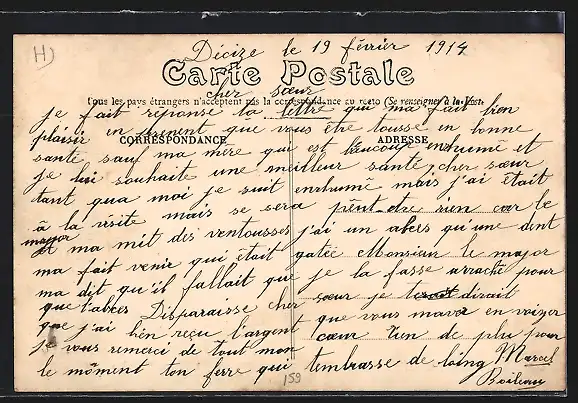 H)
Décize le 19 février 1914
Carte Postale
cher sœur
Tous les pays étrangers n'acceptent pas la correspondance au recto (Se renseigner à la Poste)
je fait réponse ta lettre qui ma fait bien
CORRESPONDANCE
ADRESSE
plaisir en que vous être tousse en bonne
santé sauf ma mère qui est beaucoup enrhumé et
je lui souhaite une meilleur santé, cher sœur
tant qua moi je suit enrhumé mais j'ai était
à la visite mais se sera pêut être rien car le
major et ma mit des ventousses j'ai un abcès qu'une dent
ma fait venir qui était gatée Monsieur le major
ma dit qu'il fallait que je la fasse arraché pour
que l'abcès Disparaisse cher sœur je te dirait
que j'ai bien reçu l'argent que vous mavez en voizer
je vous remerci de tout mon cœur rien de plu pour
le môment ton frere qui t'embrasse de loing Marcel
Boileau
159